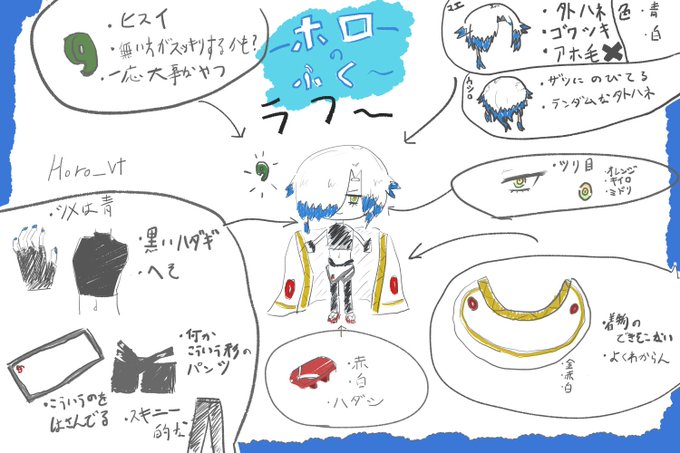 ・ヒスイ
・無い方がスッキリするかも?
・一応大事なやつ
ホロ
の
ふく
ラフ〜
マエ
・タトハネ
・ゴワツキ
・アホ毛✖
色・青
・白
ウシロ
・ザツにのびてる
・ランダムなタトハネ
Horo_vt
・ツリ目
オレンジ
・キイロ
・ミドリ
・ツメは青
・黒いハダギ
・へそ
・何か
こういう形の
パンツ
・こういうのを
はさんでる
・スキニー
的な
・赤
・白
・ハダシ
・着物の
できそこない
・よくわからん
・金
・赤
・白